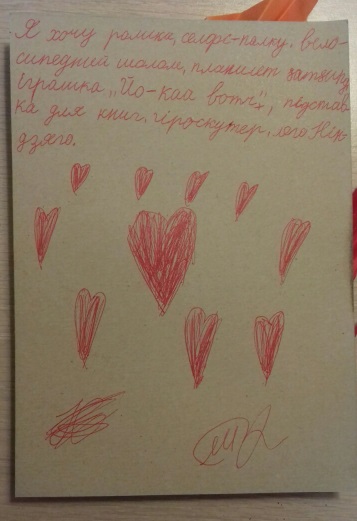 Я хочу ролики, селфі-палку, вело-
сипедний шолом, планшет
іграшка „Йо-каа вотч”, подстав-
ка для книг, гіроскутер, лого Нін-
дзяго.